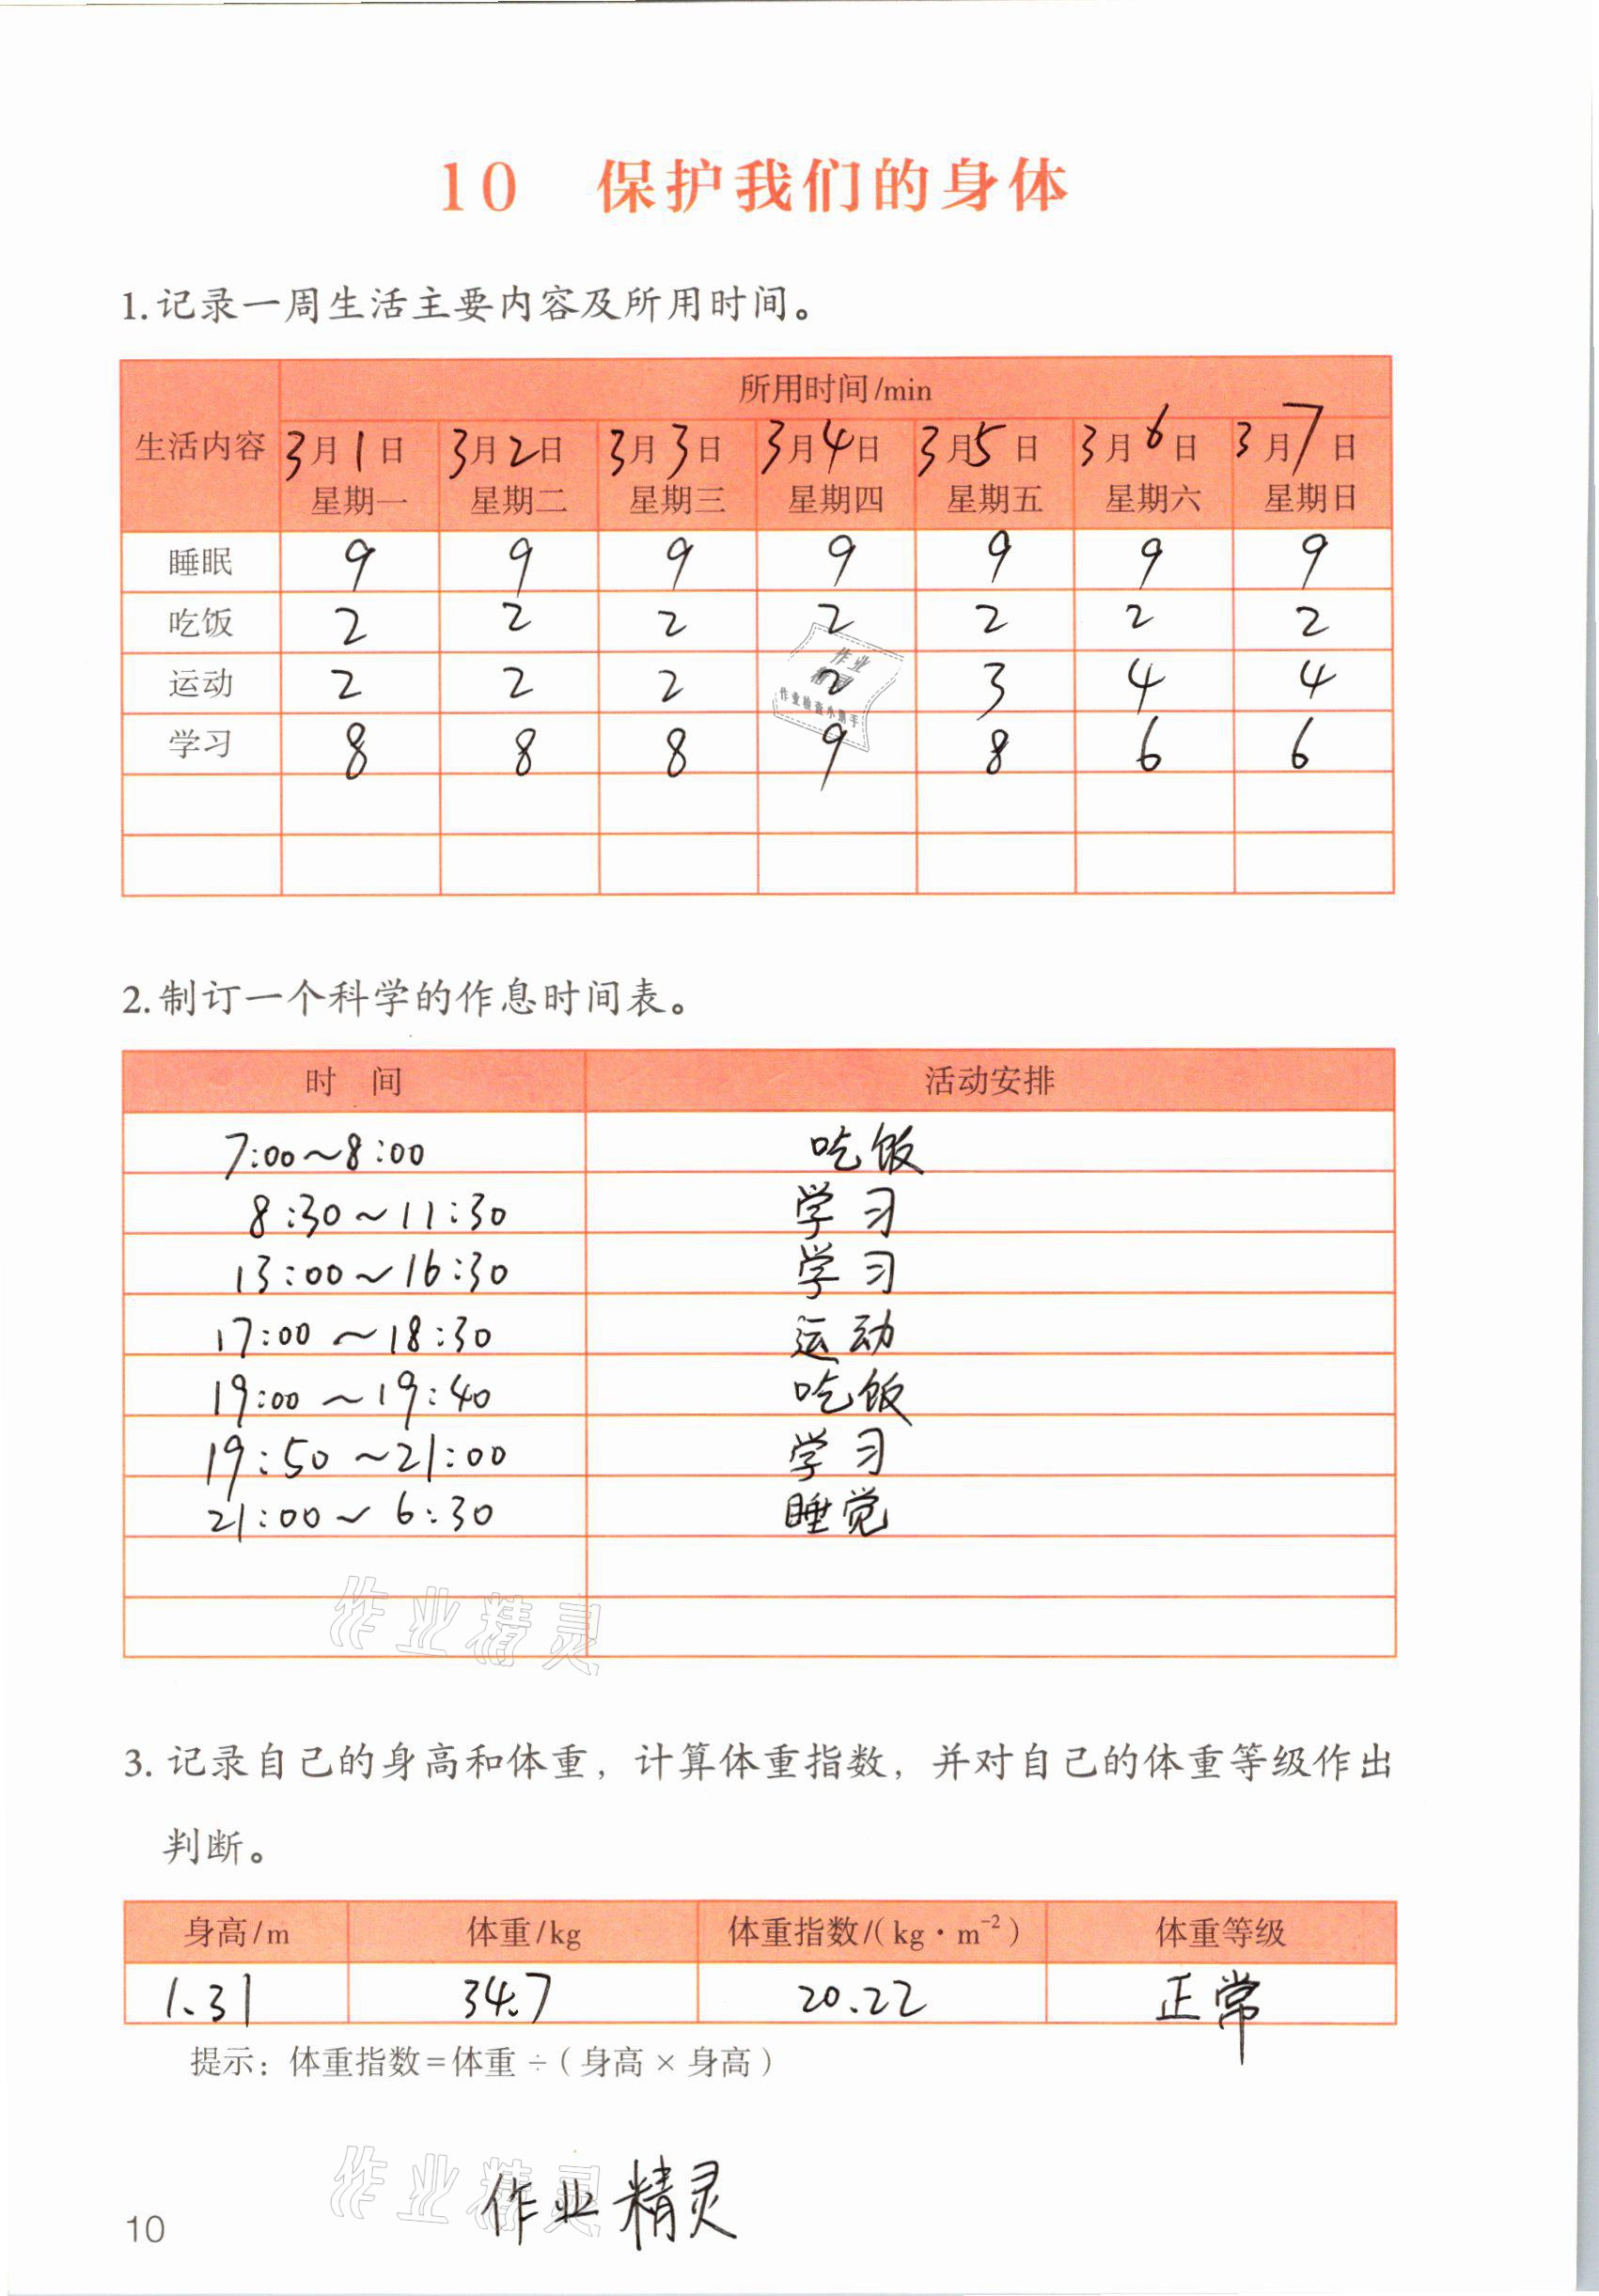 10 保护我们的身体
1.记录一周生活主要内容及所用时间。
生活内容 所用时间/min
3月1日 3月2日 3月3日 3月4日 3月5日 3月6日 3月7日
星期一 星期二 星期三 星期四 星期五 星期六 星期日
睡眠 9 9 9 9 9 9 9
吃饭 2 2 2 2 2 2 2
运动 2 2 2 2 3 4 4
学习 8 8 8 9 8 6 6
作业
精灵
作业检查小助手
2.制订一个科学的作息时间表。
时 间 活动安排
7:00~8:00 吃饭
8:30~11:30 学习
13:00~16:30 学习
17:00~18:30 运动
19:00~19:40 吃饭
19:50~21:00 学习
21:00~6:30 睡觉
作业精灵
3. 记录自己的身高和体重，计算体重指数，并对自己的体重等级作出
判断。
身高/m 体重/kg 体重指数/(kg·m⁻²) 体重等级
1.31 34.7 20.22 正常
提示：体重指数=体重÷(身高×身高)
作业精灵
作业精灵
10